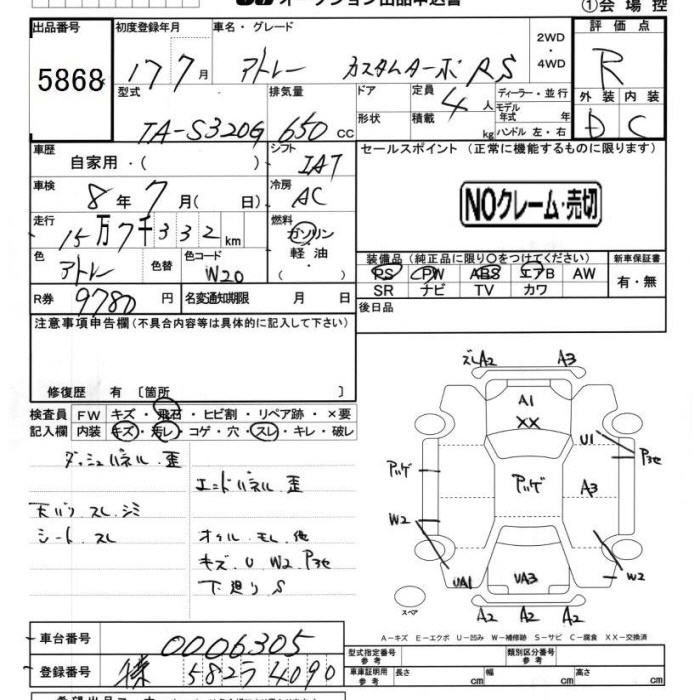 オークション出品申込書
①会場控
出品番号
5868
初度登録年月
17 7月
車名・グレード
アトレー カスタムターボRS
2WD
・
4WD
評価点
R
型式
TA-S320G
排気量
650 cc
ドア
形状
定員
4人
積載
kg
ディーラー・並行
モデル
年式 年
ハンドル 左・右
外装 内装
D C
車歴
自家用・( )
シフト
IAT
セールスポイント (正常に機能するものに限ります)
車検
8年 7月( 日)
冷房
AC
NOクレーム・売切
走行
15万7千332km
燃料
ガソリン
軽油・
( )
色
アトレー
色替
色コード
W20
装備品(純正品に限り○をつけてください)
PS PW ABS エアB AW
SR ナビ TV カワ
新車保証書
有・無
R券
9780円
名変通知期限 月 日
後日品
注意事項申告欄(不具合内容等は具体的に記入して下さい)
修復歴 有 〔箇所 〕
検査員
記入欄
FW キズ・飛石・ヒビ割・リペア跡・×要
内装 キズ・汚レ・コゲ・穴・スレ・キレ・破レ
ダッシュパネル.歪
エンドパネル.歪
天バリ スレ.シミ
シート.スレ
オイル.モレ.他
キズ.U W2 P3セ
下廻りS
ズレA2 A3
A1
XX
U1
P3セ
アゲ
アゲ
A3
W2
W2
UA1
UA3
A2 A2 A2
スペア
A-キズ E-エクボ U-凹み W-補修跡 S-サビ C-腐食 XX-交換済
車台番号
0006305
登録番号
582 ラ 4090
型式指定番号
参考
類別区分番号
参考
車庫証明用
参考
長さ cm
幅 cm
高さ cm